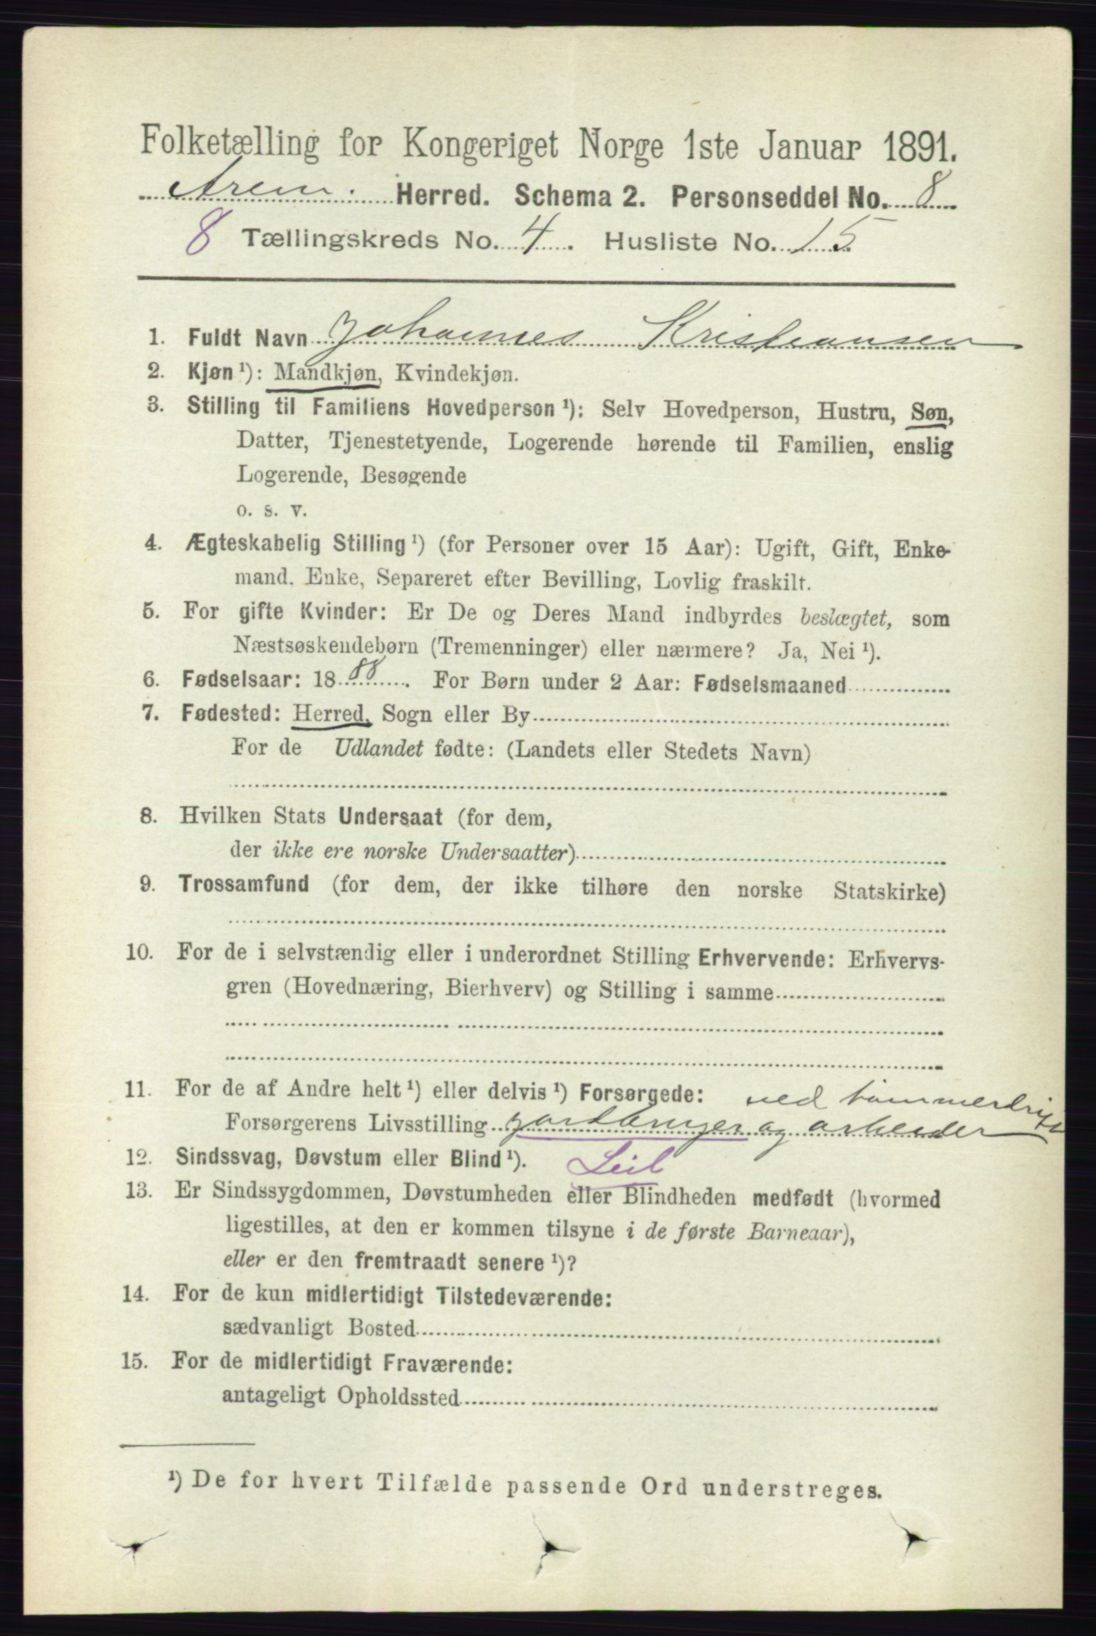 Folketælling for Kongeriget Norge 1ste Januar 1891.
Arem. Herred. Schema 2. Personseddel No. 8
8 Tællingskreds No. 4. Husliste No. 15
1. Fuldt Navn Johannes Kristiansen
2. Kjøn ¹): Mandkjøn, Kvindekjøn.
3. Stilling til Familiens Hovedperson ¹): Selv Hovedperson, Hustru, Søn,
Datter, Tjenestetyende, Logerende hørende til Familien, enslig
Logerende, Besøgende
o. s. v.
4. Ægteskabelig Stilling ¹) (for Personer over 15 Aar): Ugift, Gift, Enke-
mand. Enke, Separeret efter Bevilling, Lovlig fraskilt.
5. For gifte Kvinder: Er De og Deres Mand indbyrdes beslægtet, som
Næstsøskendebørn (Tremenninger) eller nærmere? Ja, Nei ¹).
6. Fødselsaar: 1888. For Børn under 2 Aar: Fødselsmaaned
7. Fødested: Herred, Sogn eller By
For de Udlandet fødte: (Landets eller Stedets Navn)
8. Hvilken Stats Undersaat (for dem,
der ikke ere norske Undersaatter)
9. Trossamfund (for dem, der ikke tilhøre den norske Statskirke)
10. For de i selvstændig eller i underordnet Stilling Erhvervende: Erhvervs-
gren (Hovednæring, Bierhverv) og Stilling i samme
11. For de af Andre helt ¹) eller delvis ¹) Forsørgede: ved tømmerdrift
Forsørgerens Livsstilling og arbeider
12. Sindssvag, Døvstum eller Blind ¹). Leil
13. Er Sindssygdommen, Døvstumheden eller Blindheden medfødt (hvormed
ligestilles, at den er kommen tilsyne i de første Barneaar),
eller er den fremtraadt senere ¹)?
14. For de kun midlertidigt Tilstedeværende:
sædvanligt Bosted
15. For de midlertidigt Fraværende:
antageligt Opholdssted
¹) De for hvert Tilfælde passende Ord understreges.